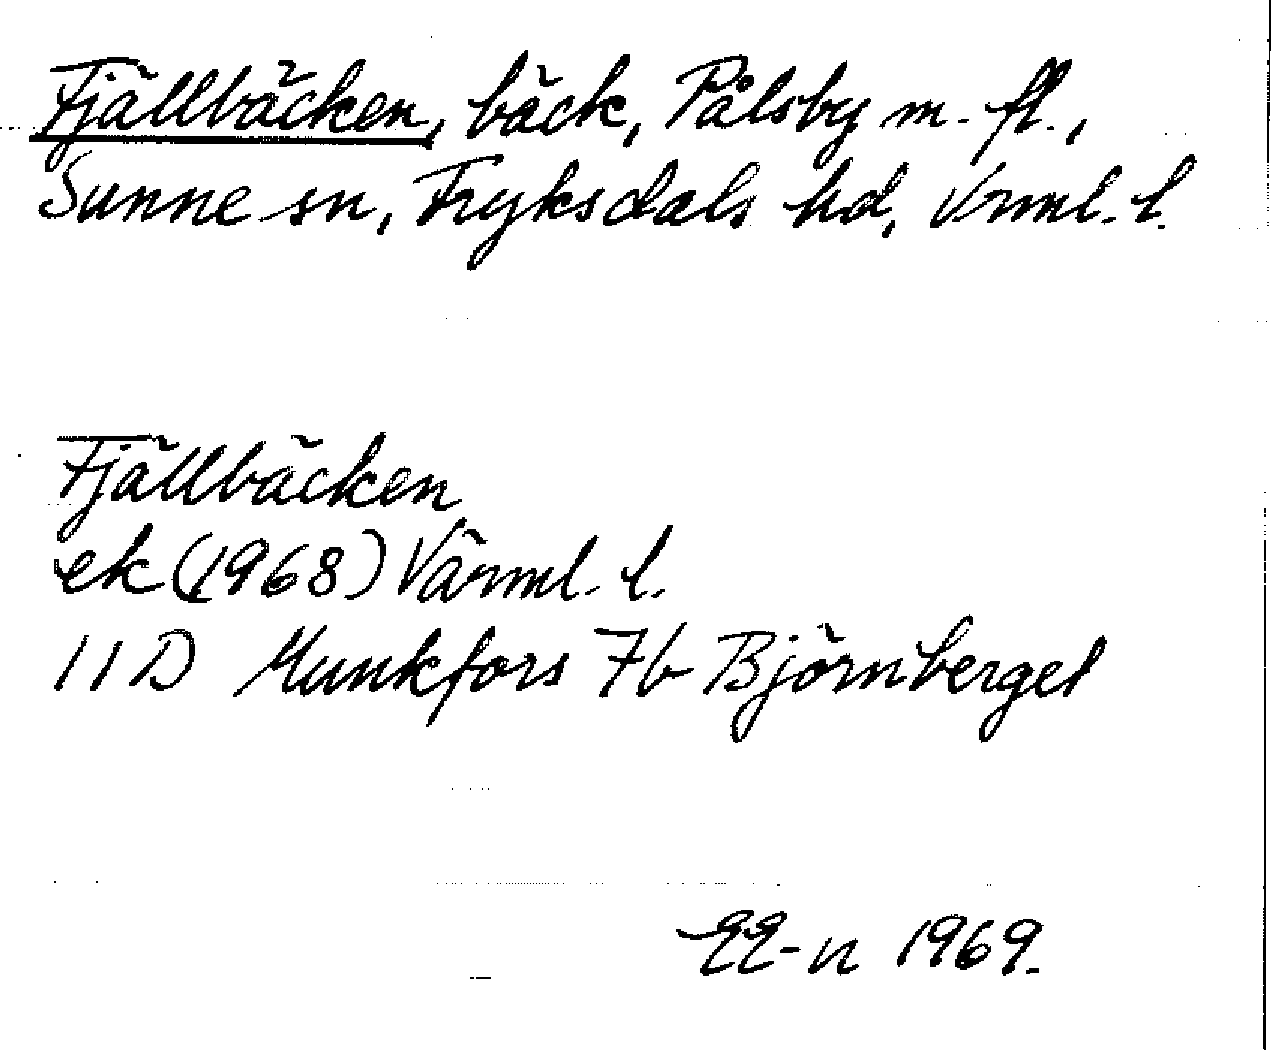 Fjällbäcken, bäck, Pålsby m. fl.,
Sunne sn, Fryksdals hd, Vrml. l.
Fjällbäcken
ek (1968) Värml. l.
11 D Munkfors 7b Björnberget
EE-n 1969.